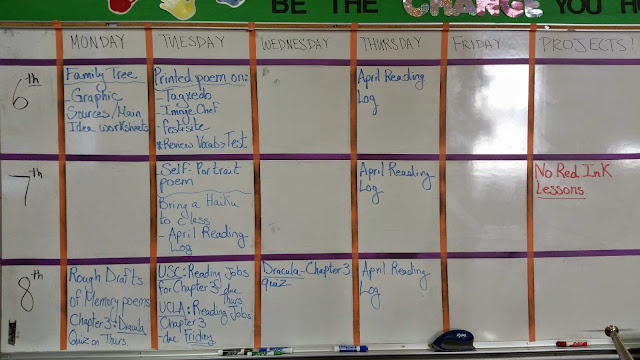 BE THE CHANGE YOU
MONDAY TUESDAY WEDNESDAY THURSDAY FRIDAY PROJECTS!
6th
Family Tree
- Graphic
Sources/Main
Idea worksheets
Printed poem on:
- Tagxedo
- Image Chef
- Festisite
*Review Vocab > Test
April Reading
Log
7th
- Self-Portrait
poem
Bring a Haiku
to class
- April Reading
Log
April Reading
Log
No Red Ink
Lessons
8th
Rough Drafts
of Memory poems
Chapter 3 Dracula
Quiz on Thurs.
USC: Reading Jobs
for Chapter 3 due
Thurs
UCLA: Reading Jobs
Chapter 3
- due Friday
Dracula - Chapter 3
quiz
April Reading
Log